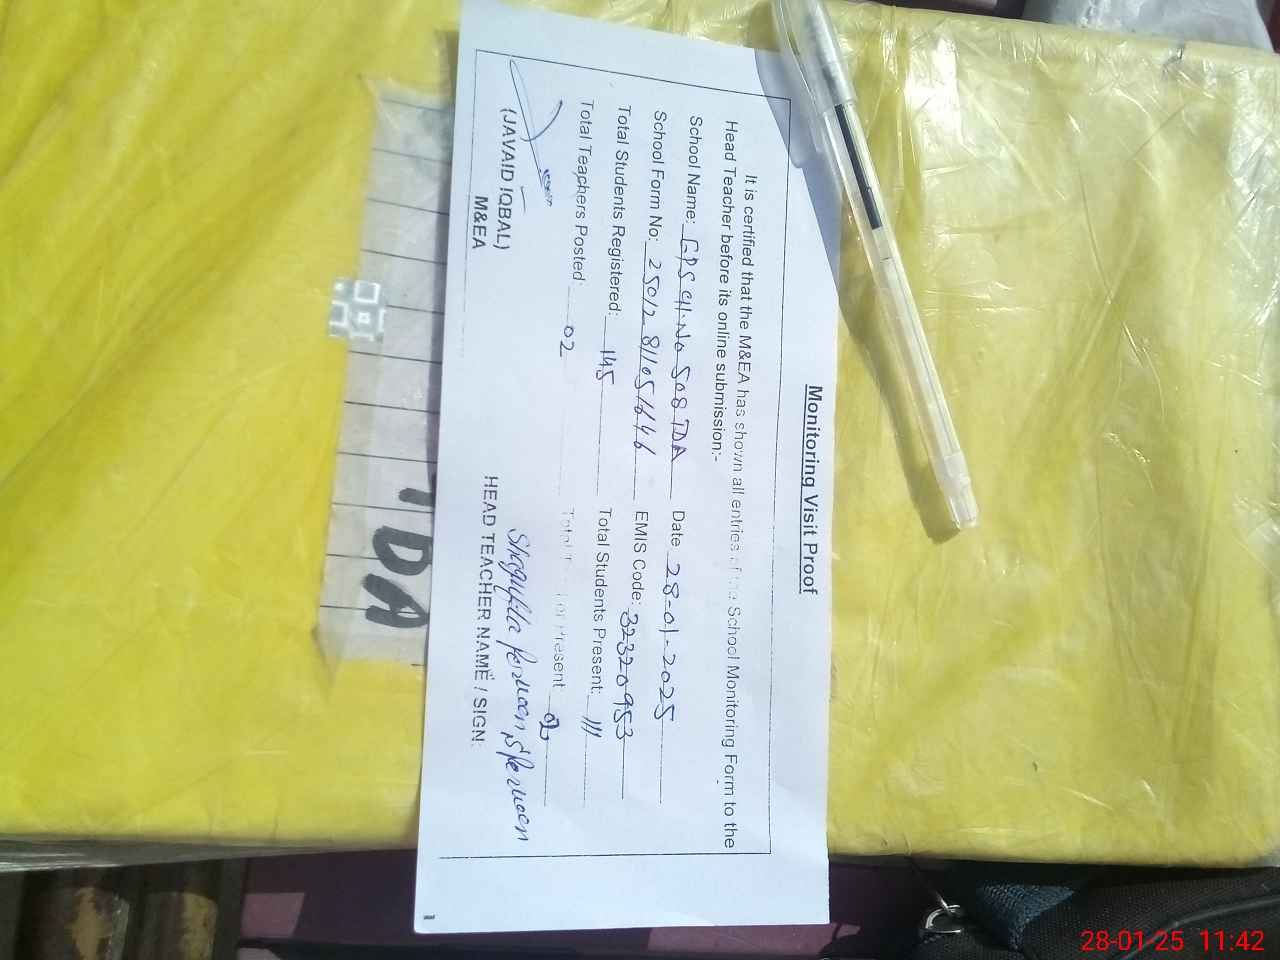 Monitoring Visit Proof
It is certified that the M&EA has shown all entries of the School Monitoring Form to the
Head Teacher before its online submission:-
School Name: GPS Ch. No 508 TDA Date 28-01-2025
School Form No: 25012 811051646 EMIS Code: 32320953
Total Students Registered: 145 Total Students Present: 111
Total Teachers Posted: 02 Total Present 02
(JAVAID IQBAL)
M&EA
Shagufta Perveen S Perveen
HEAD TEACHER NAME / SIGN:
TDA
28-01-25 11:42